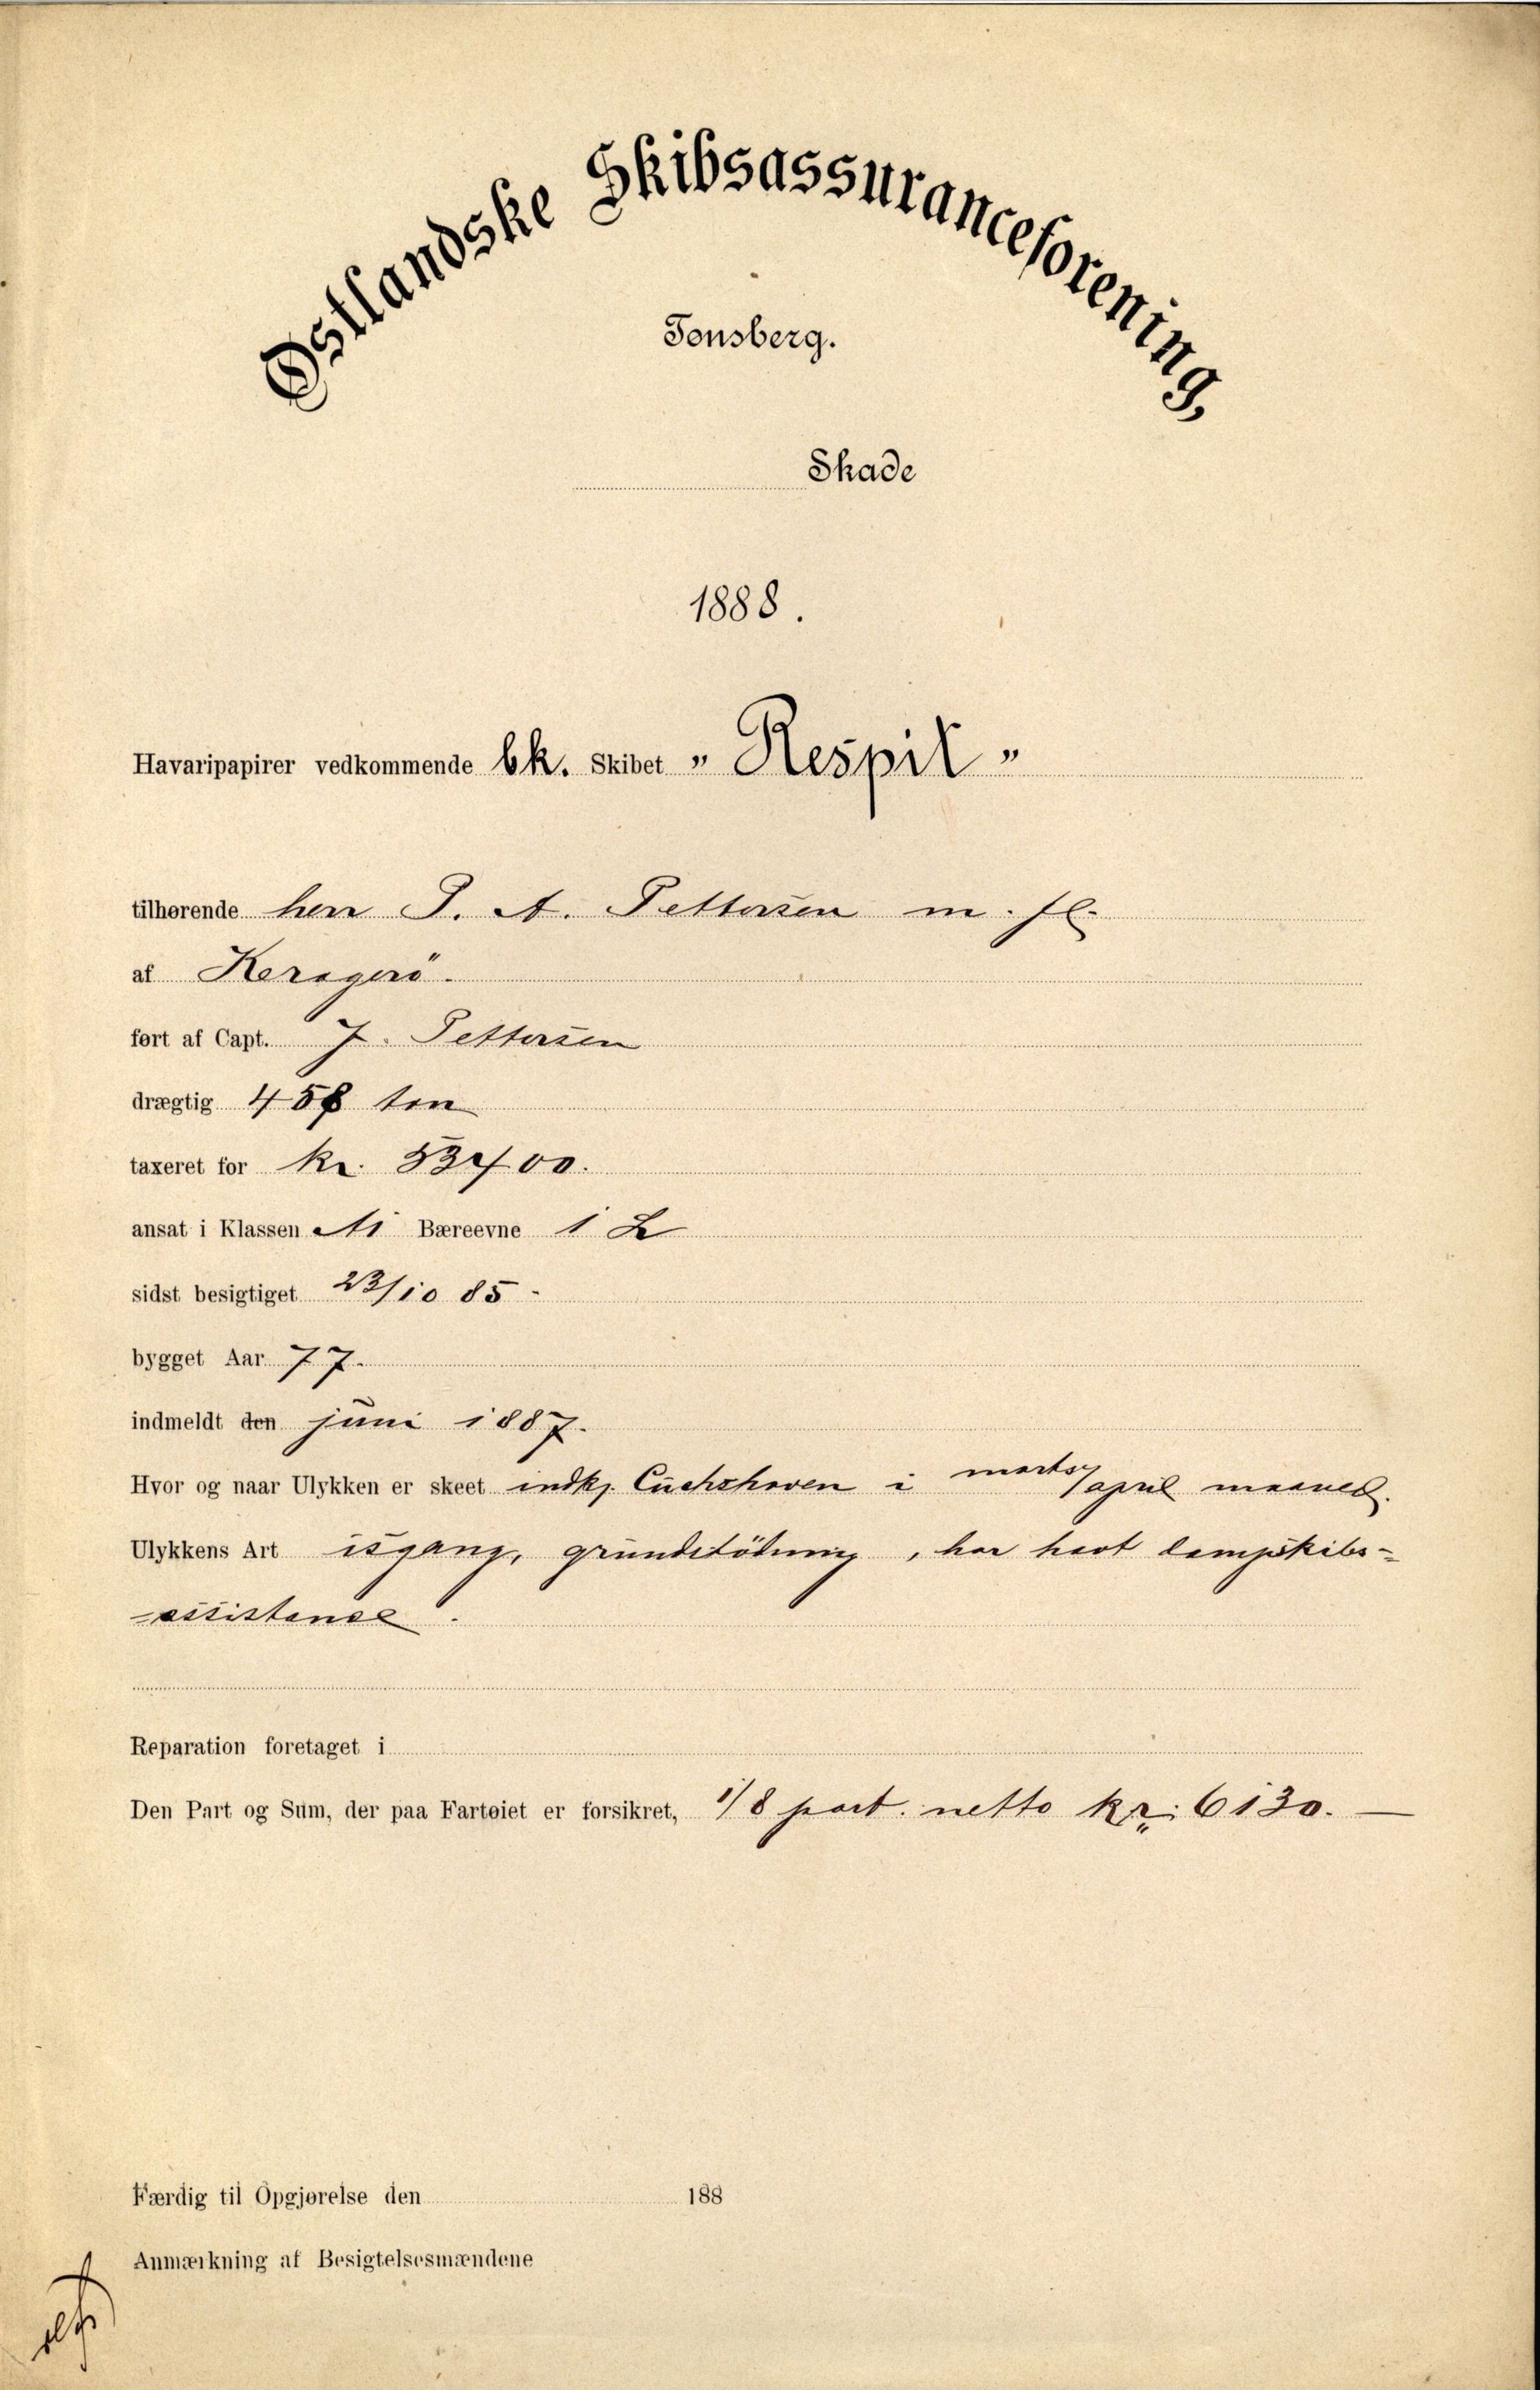 Østlandske Skibsassuranceforening,
Tønsberg.
Skade
1888.
Havaripapirer vedkommende bk. Skibet „Respit"
tilhørende herr P. A. Pettersen m. fl.
af Keragerö.
ført af Capt. J. Pettersen
drægtig 458 ton
taxeret for kr.
ansat i Klassen A1 Bæreevne 1 L
sidst besigtiget 23/10 85 -
bygget Aar 77.
indmeldt den juni 1887.
Hvor og naar Ulykken er skeet indkj. Cuchshaven i marts/april maaned.
Ulykkens Art isgang, grundstödning, har havt dampskibs-
assistance.
Reparation foretaget i
Den Part og Sum, der paa Fartøiet er forsikret, 1/8 part. netto kr. 6130. —
Færdig til Opgjørelse den 188
Anmærkning af Besigtelsesmændene